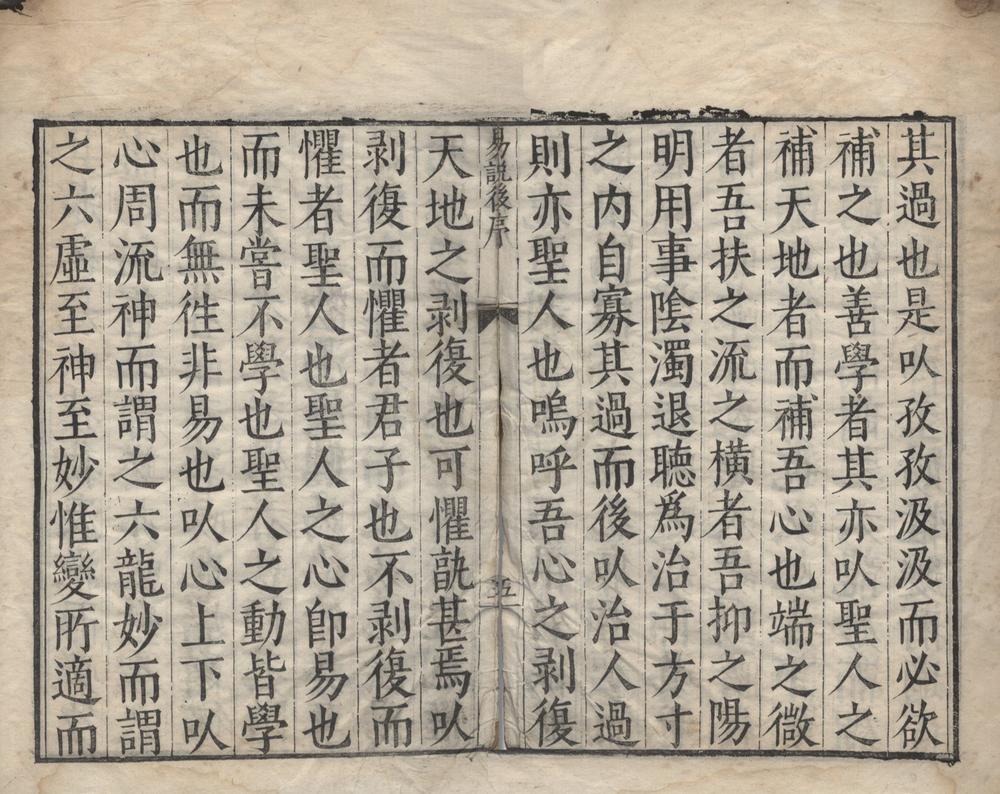 其過也是㕥孜孜汲汲而必欲
補之也善學者其亦㕥聖人之
補天地者而補吾心也端之微
者吾扶之流之橫者吾抑之陽
明用事陰濁退聽爲治于方寸
之内自寡其過而後㕥治人過
則亦聖人也嗚呼吾心之剥復
易說後序
五
天地之剥復也可懼孰甚焉㕥
剥復而懼者君子也不剥復而
懼者聖人也聖人之心卽易也
而未嘗不學也聖人之動皆學
也而無徃非易也㕥心上下㕥
心周流神而謂之六龍妙而謂
之六虛至神至妙惟變所適而